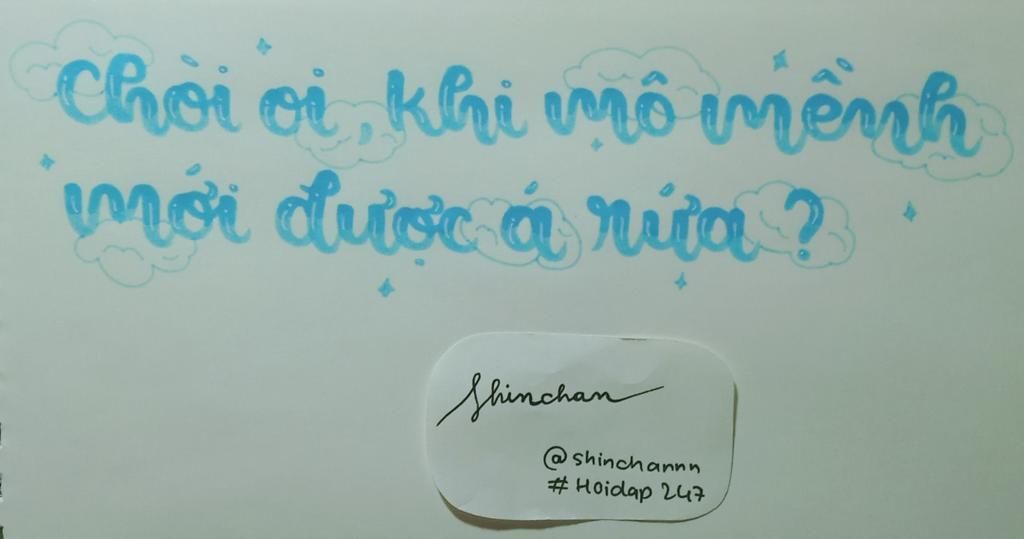 Chòi oi, khi mô mềnh
mới được á rứa ?
Shinchan
@shinchannn
#Hoidap 247